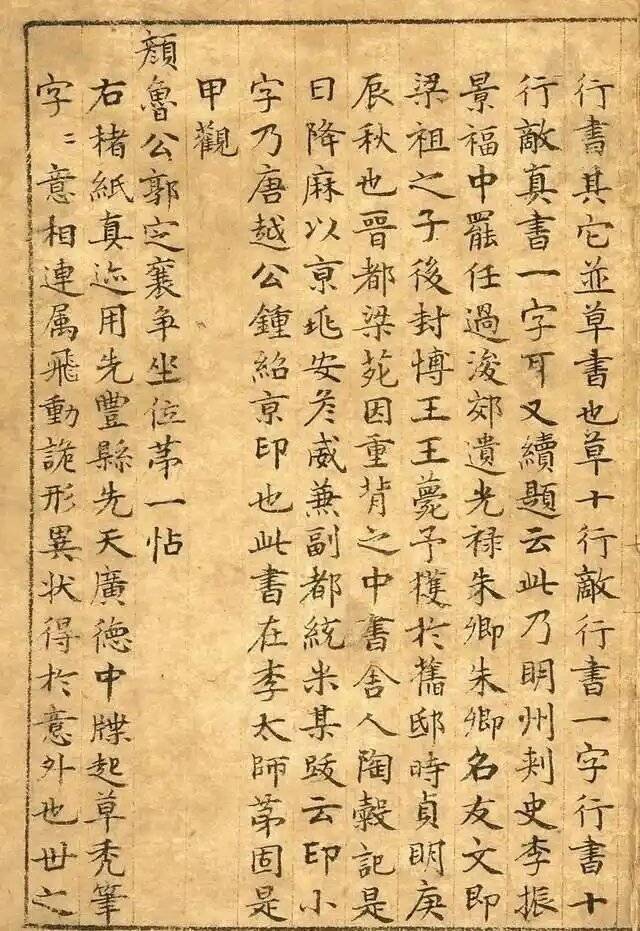 行書其它並草書也草十行敵行書一字行書十
行敵真書一字可又續題云此乃明州刺史李振
景福中罷任過浚郊遺光祿朱卿朱卿名友文即
梁祖之子後封博王王薨予獲於舊邸時貞明庚
辰秋也晉都梁苑因重背之中書舍人陶穀記是
日降麻以京兆安彦威兼副都統米某跋云印小
字乃唐越公鍾紹京印也此書在李太師第固是
甲觀
顏魯公郭定襄爭坐位第一帖
右楮紙真迹用先豐縣先天廣德中牒起草禿筆
字〻意相連属飛動詭形異状得於意外也世之